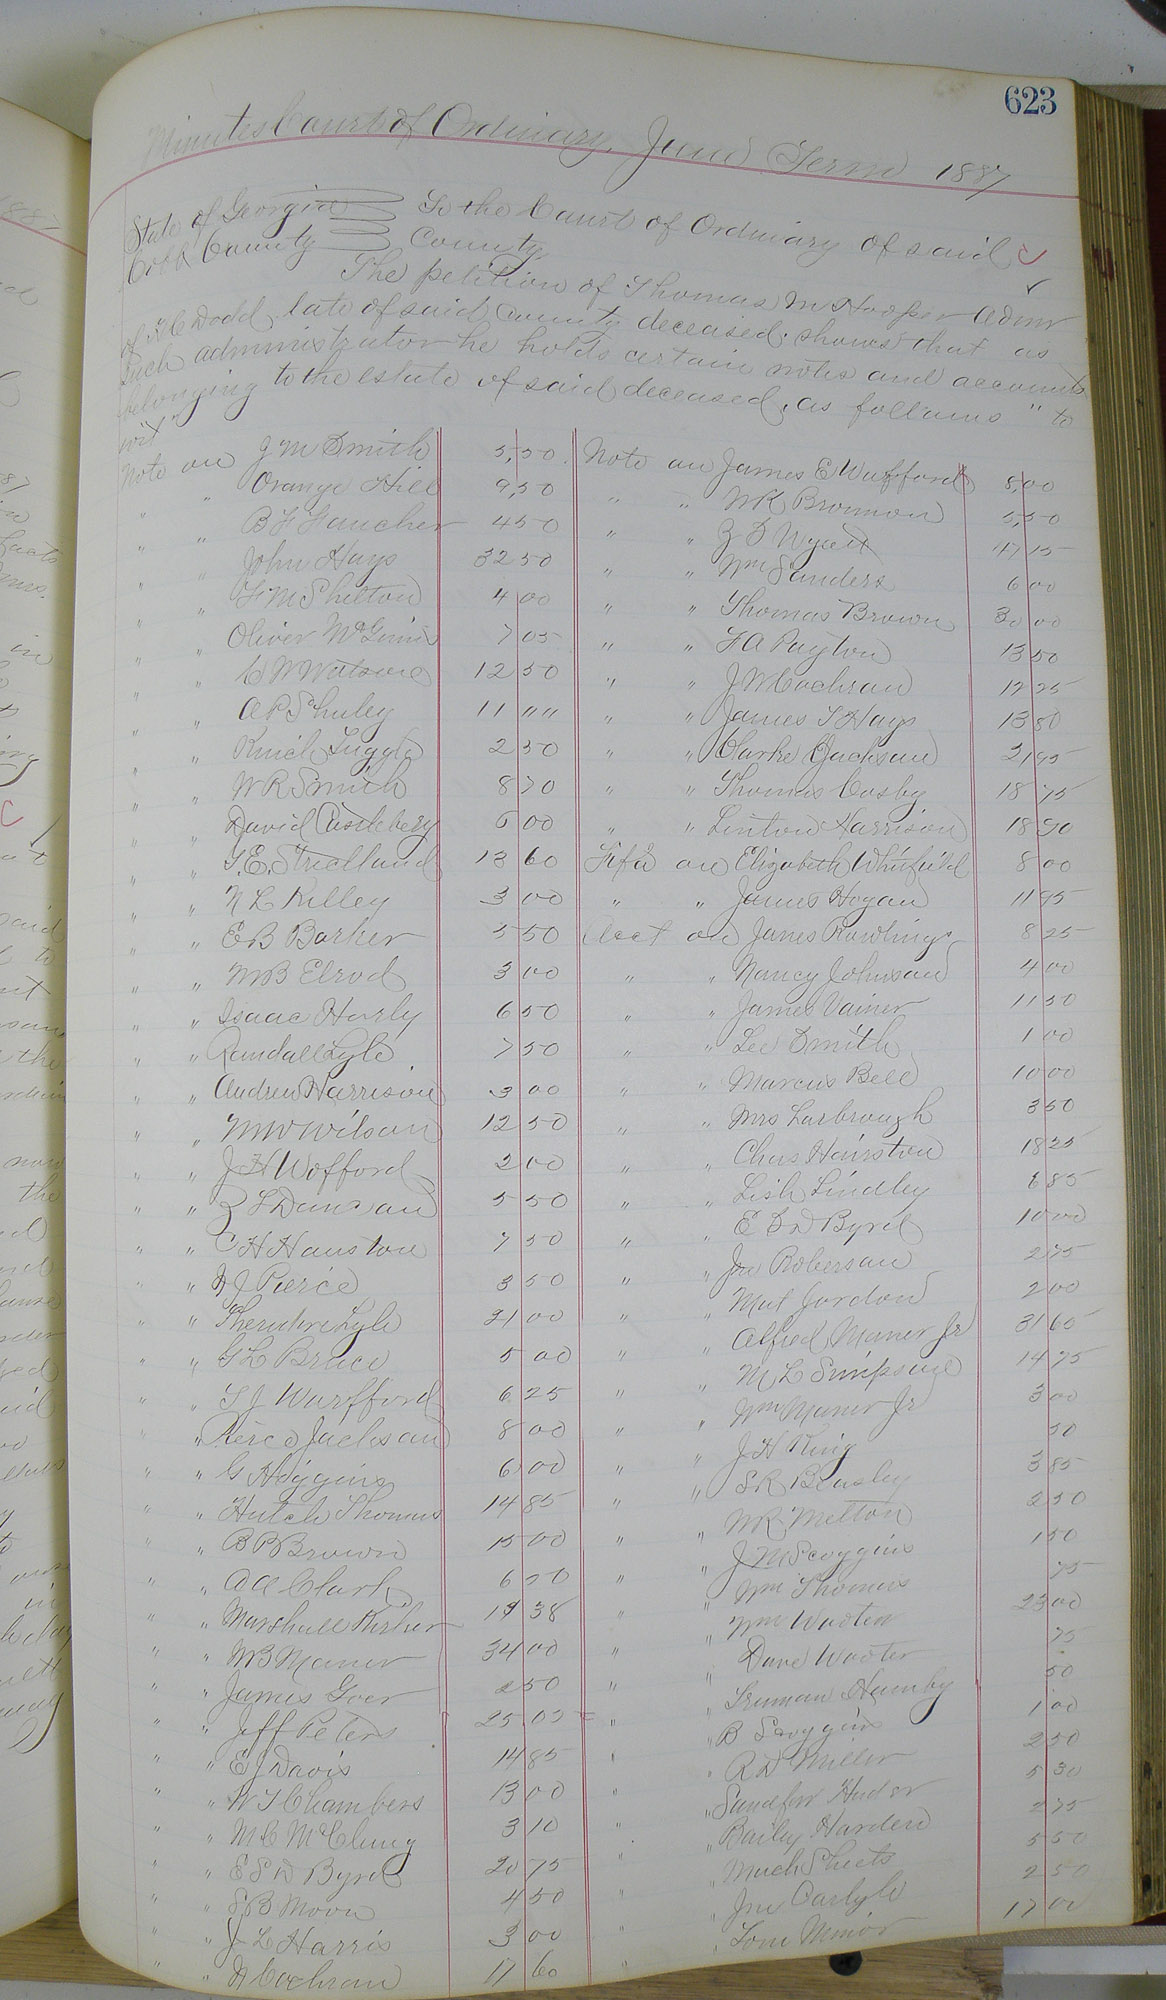 623
Minutes Court of Ordinary, June Term 1887
State of Georgia To the Court of Ordinary of said
Cobb County County
The petition of Thomas M Hooper Admr
of Dodd late of said county deceased, shows that as
such administrator he holds certain notes and accounts
belonging to the estate of said deceased, as follows "to
wit"
Note on J M Smith 5,50
" " Orange Hill 9,50
" " B F Faucher 4 50
" " John Hays 32 50
" " F M Shelton 4 00
" " Oliver McGinnis 7 05
" " Watson 12 50
" " A P Shuley 11 " "
" " Tuggle 2 50
" " W R Smith 8 70
" " David Castlebery 6 00
" " T. E. Strickland 13 60
" " N L Kelley 3 00
" " E B Barker 5 50
" " W B Elrod 3 00
" " Isaac Hurly 6 50
" " Randall Lyle 7 50
" " Andrew Harrison 3 00
" " M W Wilson 12 50
" " J H Wofford 2 00
" " Z L Duncan 5 50
" " C H Hauston 7 50
" " Pierce 3 50
" " Lyle 21 00
" " G L Bruce 5 00
" " T J Warfford 6 25
" " Jackson 8 00
" " G Hoggins 6 00
" " Hutch Thomas 14 85
" " B P Brown 15 00
" " A A Clark 6 50
" " Marshall 19 38
" " W B Maner 34 00
" " James Goer 2 50
" " Jeff Peters 25 05
" " E J Davis 14 85
" " W T Chambers 13 00
" " M C McClung 3 10
" " E S D Byrd 20 75
" " S B Moon 4 50
" " J L Harris 3 00
" " Cochran 11 60
Note on James E Wafford 8,00
" " W R Brannon 5,50
" " Z T Wyatt 47 15
" " Wm Sanders 6 00
" " Thomas Brown 30 00
" " F A Payton 13 50
" " J M Cochran 12 25
" " James T Hays 13 80
" " Clarke Jackson 21 95
" " Thomas Cosby 18 75
" " Linton Harrison 18 90
Fifa on Elizabeth Whitfield 8 00
" " James Hogan 11 95
Acct on James Rawlings 8 25
" " Nancy Johnson 4 00
" " James Vainer 11 50
" " Lee Smith 1 00
" " Marcus Bell 10 00
" " Mrs Larbrough 3 50
" " Chas Hairston 18 25
" " Lish Lindley 6 85
" " E S D Byrd 10 00
" " Jno Roberson 2 75
" " Mat Jordon 2 00
" " Alfred Maner Jr 31 65
" " M L Simpson 14 75
" " Wm Maner Jr 3 00
" " J H King 50
" " S R Beasley 3 85
" " W R Melton 2 50
" " J M Scoggins 1 50
" " Wm Thomas 75
" " Wm Wooten 23 00
" " Dave Wooter 75
" " Truman Hamby 50
" " B Scoggin 1 00
" " R D Miller 2 50
" " 5 30
" " Baily Harden 2 75
" " Much Sheets 5 50
" " Jno Carlyle 2 50
" " Tom Minor 17 00